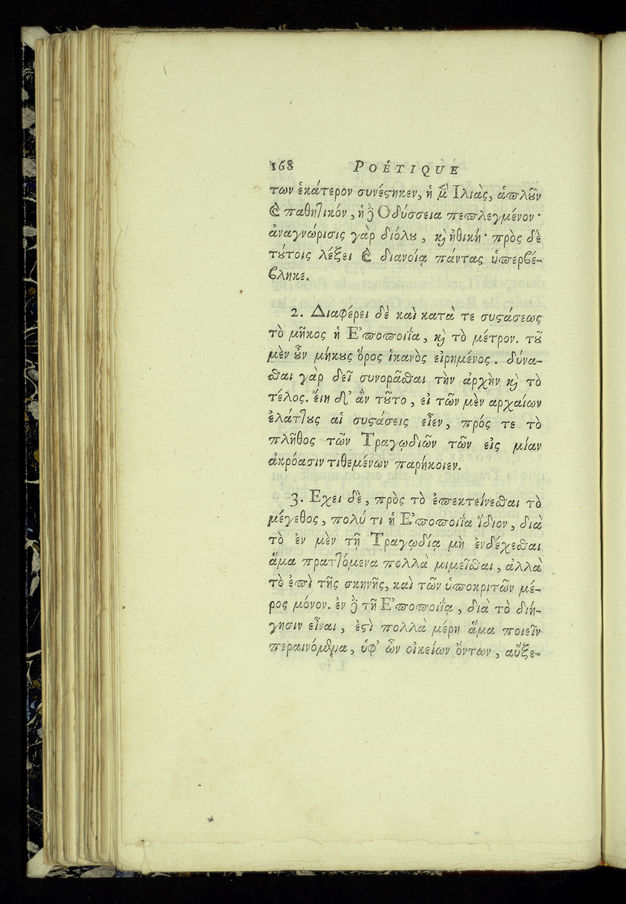 168 POÉTIQUE
των ἑκάτερον συνέστηκεν, ἡ μὲν Ἰλιὰς, ἁπλοῦν
καὶ παθητικόν, ἡ δὲ Ὀδύσσεια πεπλεγμένον·
ἀναγνώρισις γὰρ διόλου, καὶ ἠθική· πρὸς δὲ
τούτοις λέξει καὶ διανοίᾳ πάντας ὑπερβέ-
βληκε.
2. Διαφέρει δὲ καὶ κατά τε συστάσεως
τὸ μῆκος ἡ Ἐποποιΐα, καὶ τὸ μέτρον. τοῦ
μὲν οὖν μήκους ὅρος ἱκανὸς εἰρημένος. δύνα-
σθαι γὰρ δεῖ συνορᾶσθαι τὴν ἀρχὴν καὶ τὸ
τέλος. εἴη δ' ἂν τοῦτο, εἰ τῶν μὲν αρχαίων
ἐλάττους αἱ συστάσεις εἶεν, πρός τε τὸ
πλῆθος τῶν Τραγῳδιῶν τῶν εἰς μίαν
ἀκρόασιν τιθεμένων παρήκοιεν.
3. Εχει δὲ, πρὸς τὸ ἐπεκτείνεσθαι τὸ
μέγεθος, πολύ τι ἡ Ἐποποιΐα ἴδιον, διὰ
τὸ ἐν μὲν τῇ Τραγῳδίᾳ μὴ ἐνδέχεσθαι
ἅμα πραττόμενα πολλὰ μιμεῖσθαι, ἀλλὰ
τὸ ἐπὶ τῆς σκηνῆς, καὶ τῶν ὑποκριτῶν μέ-
ρος μόνον. ἐν δὲ τῇ Ἐποποιΐᾳ, διὰ τὸ διή-
γησιν εἶναι, ἐστὶ πολλὰ μέρη ἅμα ποιεῖν
περαινόμενα, ὑφ' ὧν οἰκείων ὄντων, αὔξε-